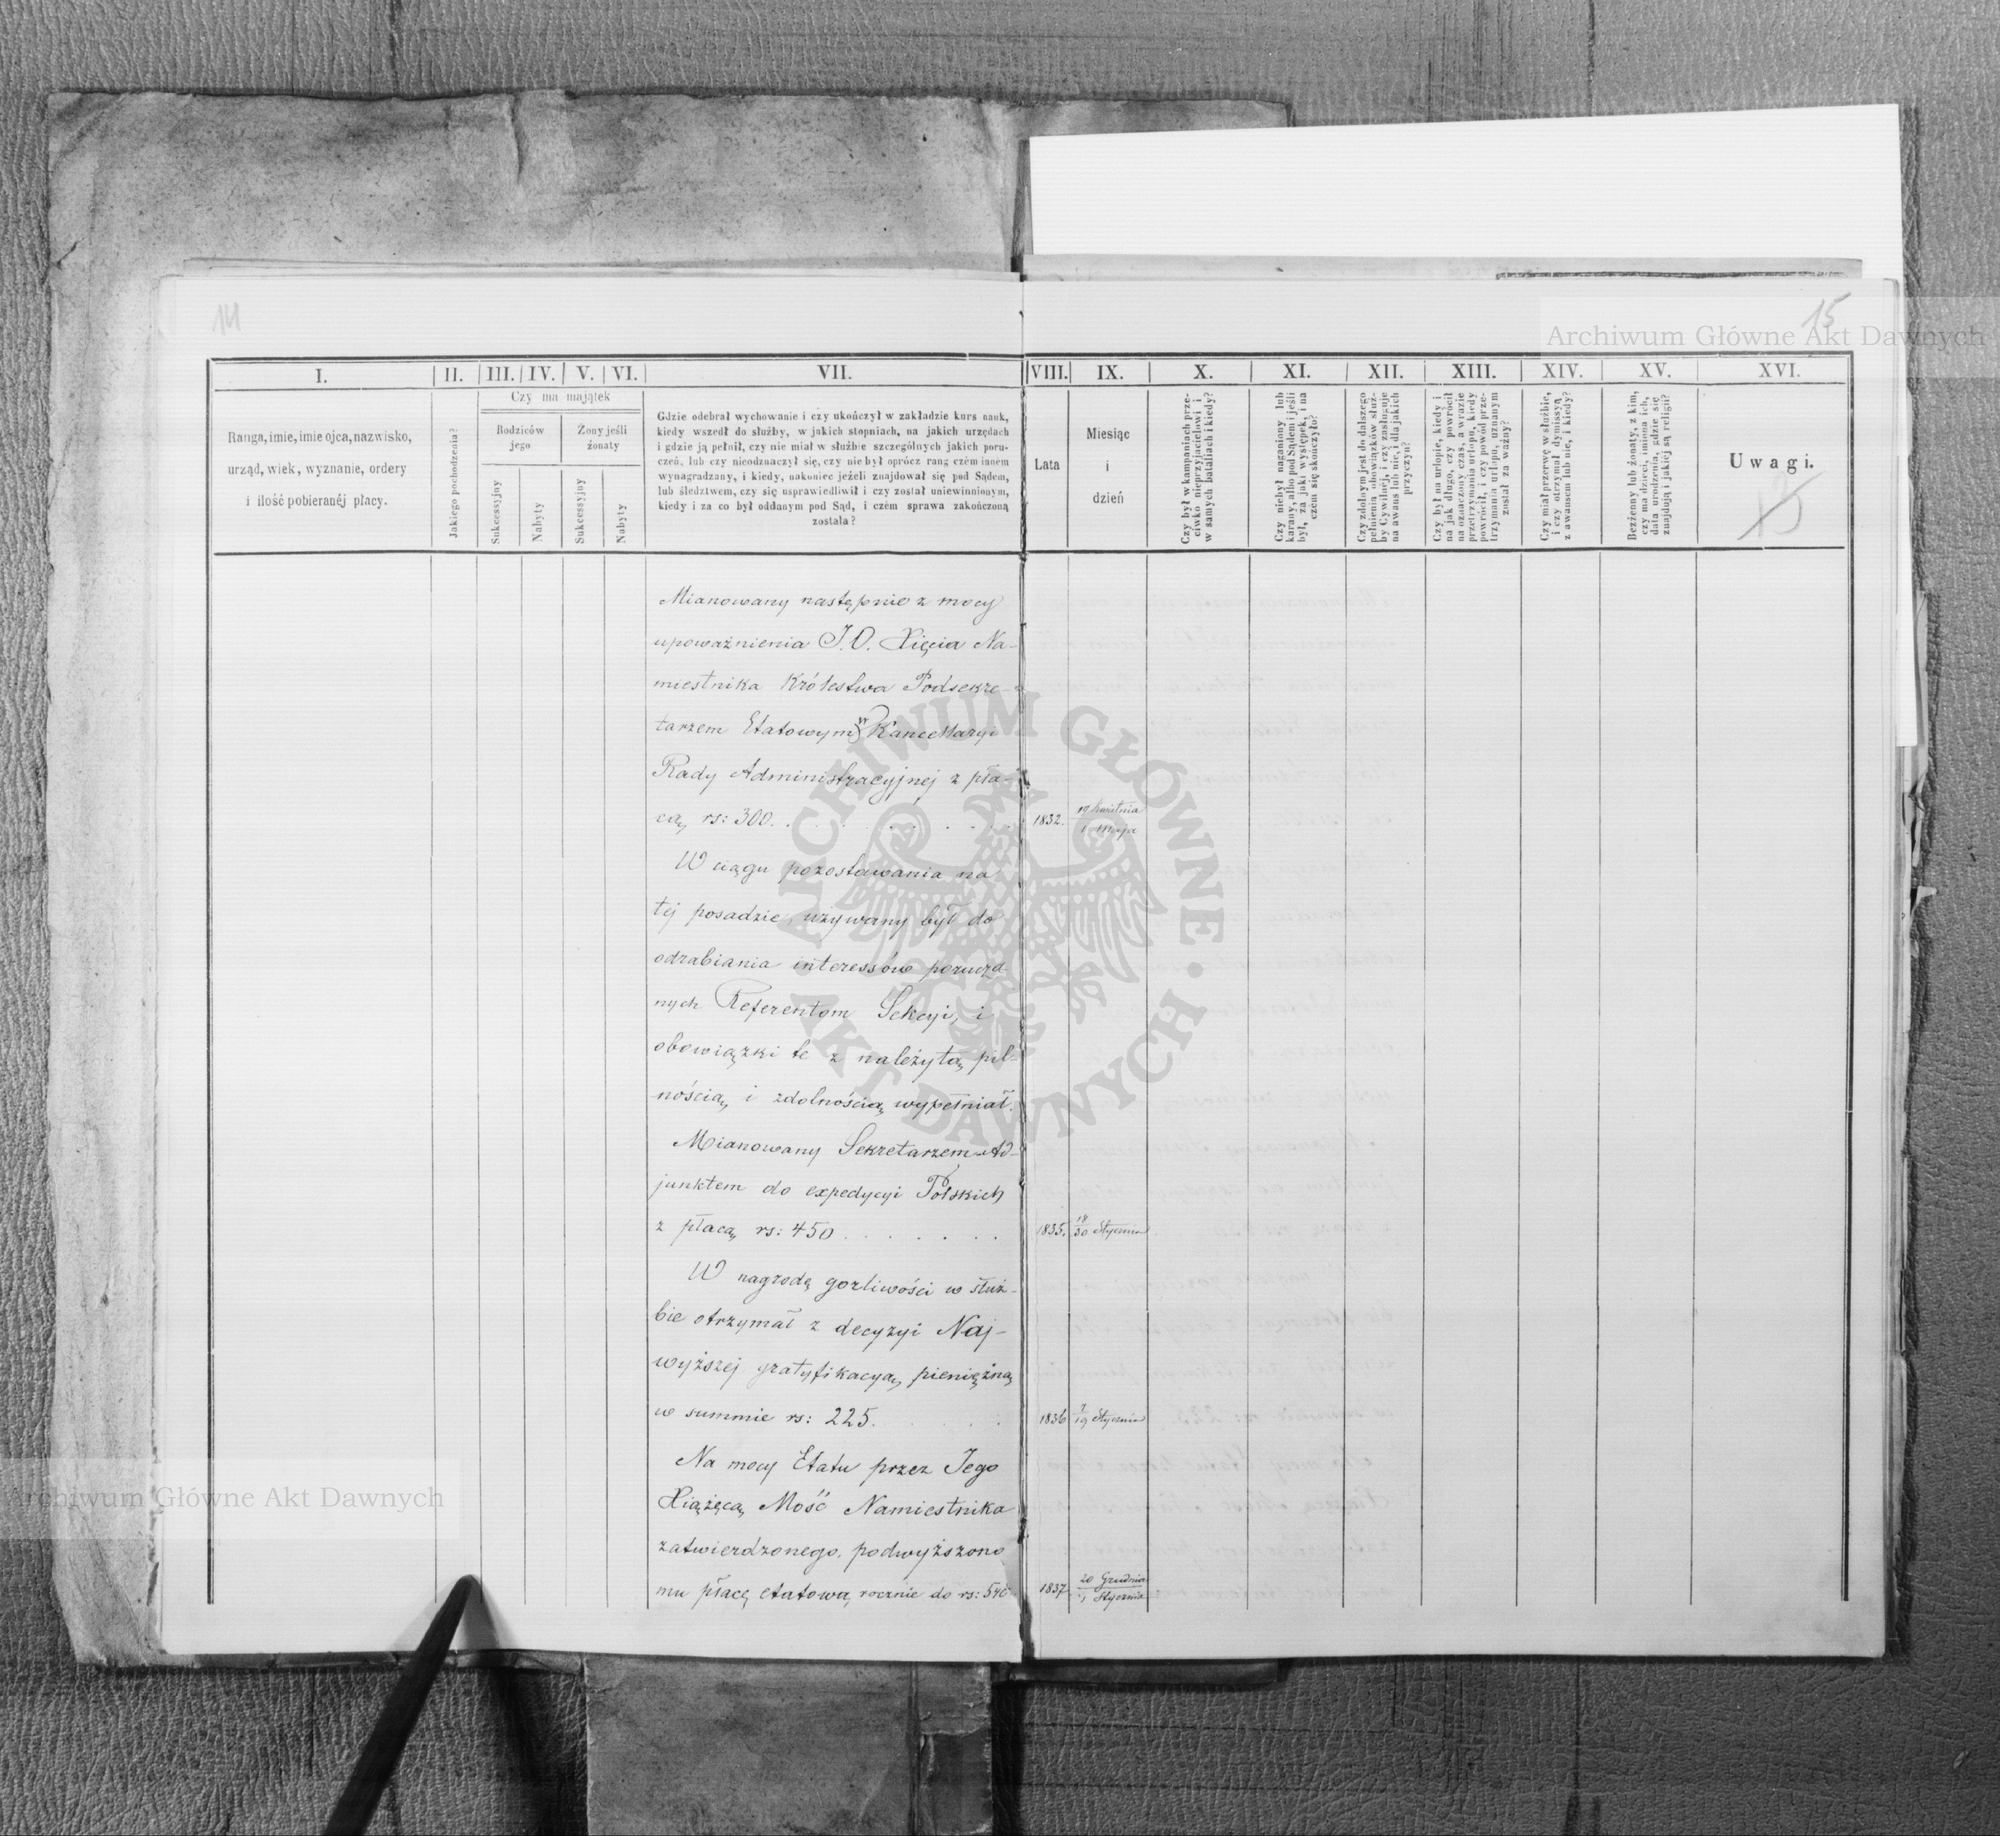 14
15
Archiwum Główne Akt Dawnych
I.
II.
III.
IV.
V.
VI.
VII.
VIII.
IX.
X.
XI.
XII.
XIII.
XIV.
XV.
XVI.
Ranga, imie, imie ojca, nazwisko,
urząd, wiek, wyznanie, ordery
i ilość pobieranéj płacy.
Jakiego pochodzenia?
Czy ma majątek
Rodziców
jego
Żony jeśli
żonaty
Sukcessyjny
Nabyty
Sukcessyjny
Nabyty
Gdzie odebrał wychowanie i czy ukończył w zakładzie kurs nauk,
kiedy wszedł do służby, w jakich stopniach, na jakich urzędach
i gdzie ją pełnił, czy nie miał w służbie szczególnych jakich poru-
czeń, lub czy nieodznaczył się, czy nie był oprócz rang czém innem
wynagradzany, i kiedy, nakoniec jeżeli znajdował się pod Sądem,
lub śledztwem, czy się usprawiedliwił i czy został uniewinnionym,
kiedy i za co był oddanym pod Sąd, i czém sprawa zakończoną
została?
Lata
Miesiąc
i
dzień
Czy był w kampaniach prze-
ciwko nieprzyjacielowi i
w samych bataliach i kiedy?
Czy niebył naganiony lub
karany, albo pod Sądem i jeśli
był, za jaki występek, i na
czém się skończyło?
Czy zdolnym jest do dalszego
pełnienia obowiązków służ-
by Cywilnej, i czy zasługuje
na awans lub nie, i dla jakich
przyczyn?
Czy był na urlopie, kiedy i
na jak długo, czy powrócił
na oznaczony czas, a w razie
przetrzymania urlopu, kiedy
powrócił, i czy powód prze-
trzymania urlopu, uznanym
został za ważny?
Czy miał przerwę w służbie,
i czy otrzymał dymissyą
z awansem lub nie, i kiedy?
Bezżenny lub żonaty, z kim,
czy ma dzieci, imiona ich,
data urodzenia, gdzie się
znajdują i jakiéj są religii?
Uwagi.
Mianowany następnie z mocy
upoważnienia J.O. Xięcia Na-
miestnika Królestwa Podsekre-
tarzem Etatowym w Kancellaryi
Rady Administracyjnej z pła-
cą rs: 300.
1832.
19 Kwietnia
1 Maja
W ciągu pozostawania na
tej posadzie, używany był do
odrabiania interessów poruczo-
nych Referentom Sekcyi, i
obowiązki te z należytą pil-
nością i zdolnością wypełniał.
Mianowany Sekretarzem Ad-
junktem do expedycyi Polskich
z płacą rs: 450
1835.
18
30 Stycznia
W nagrodę gorliwości w służ-
bie otrzymał z decyzyi Naj-
wyższej gratyfikacyą pieniężną
w summie rs: 225.
1836
7
19 Stycznia
Na mocy Etatu przez Jego
Xiążęcą Mość Namiestnika
zatwierdzonego, podwyższono
mu płacę etatową rocznie do rs: 540
1837.
20 Grudnia
1 Stycznia
ARCHIWUM GŁÓWNE
AKT DAWNYCH
Archiwum Główne Akt Dawnych